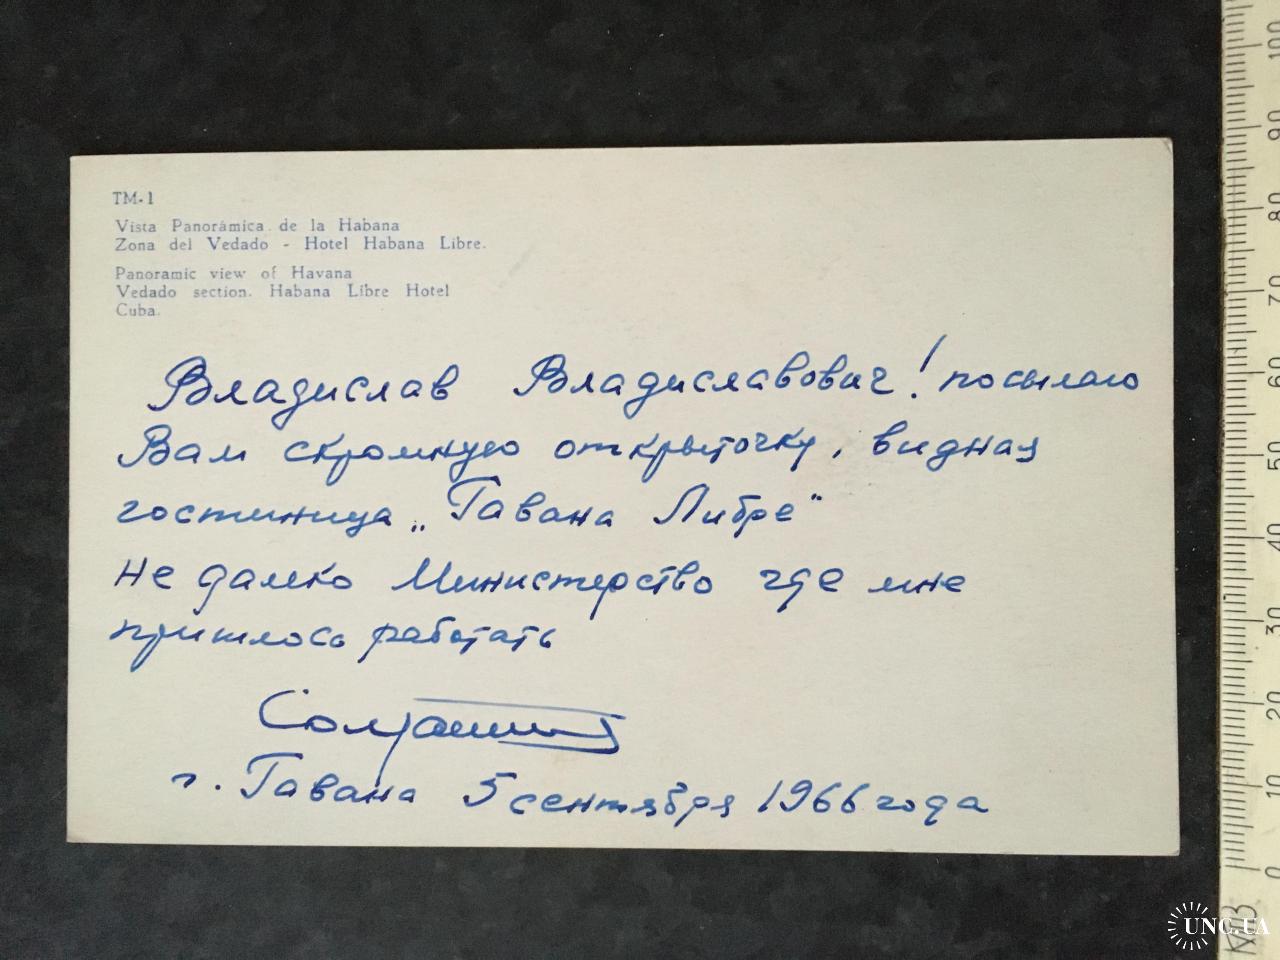 TM-1
Vista Panorámica de la Habana
Zona del Vedado - Hotel Habana Libre.
Panoramic view of Havana
Vedado section. Habana Libre Hotel
Cuba.
Владислав Владиславович! посылаю
Вам скромную открыточку, видная
гостиница „Гавана Либре"
не далеко Министерство где мне
пришлось работать
г. Гавана 5 сентября 1966 года
100
90
80
70
60
50
40
30
20
10
0
UNC.UA